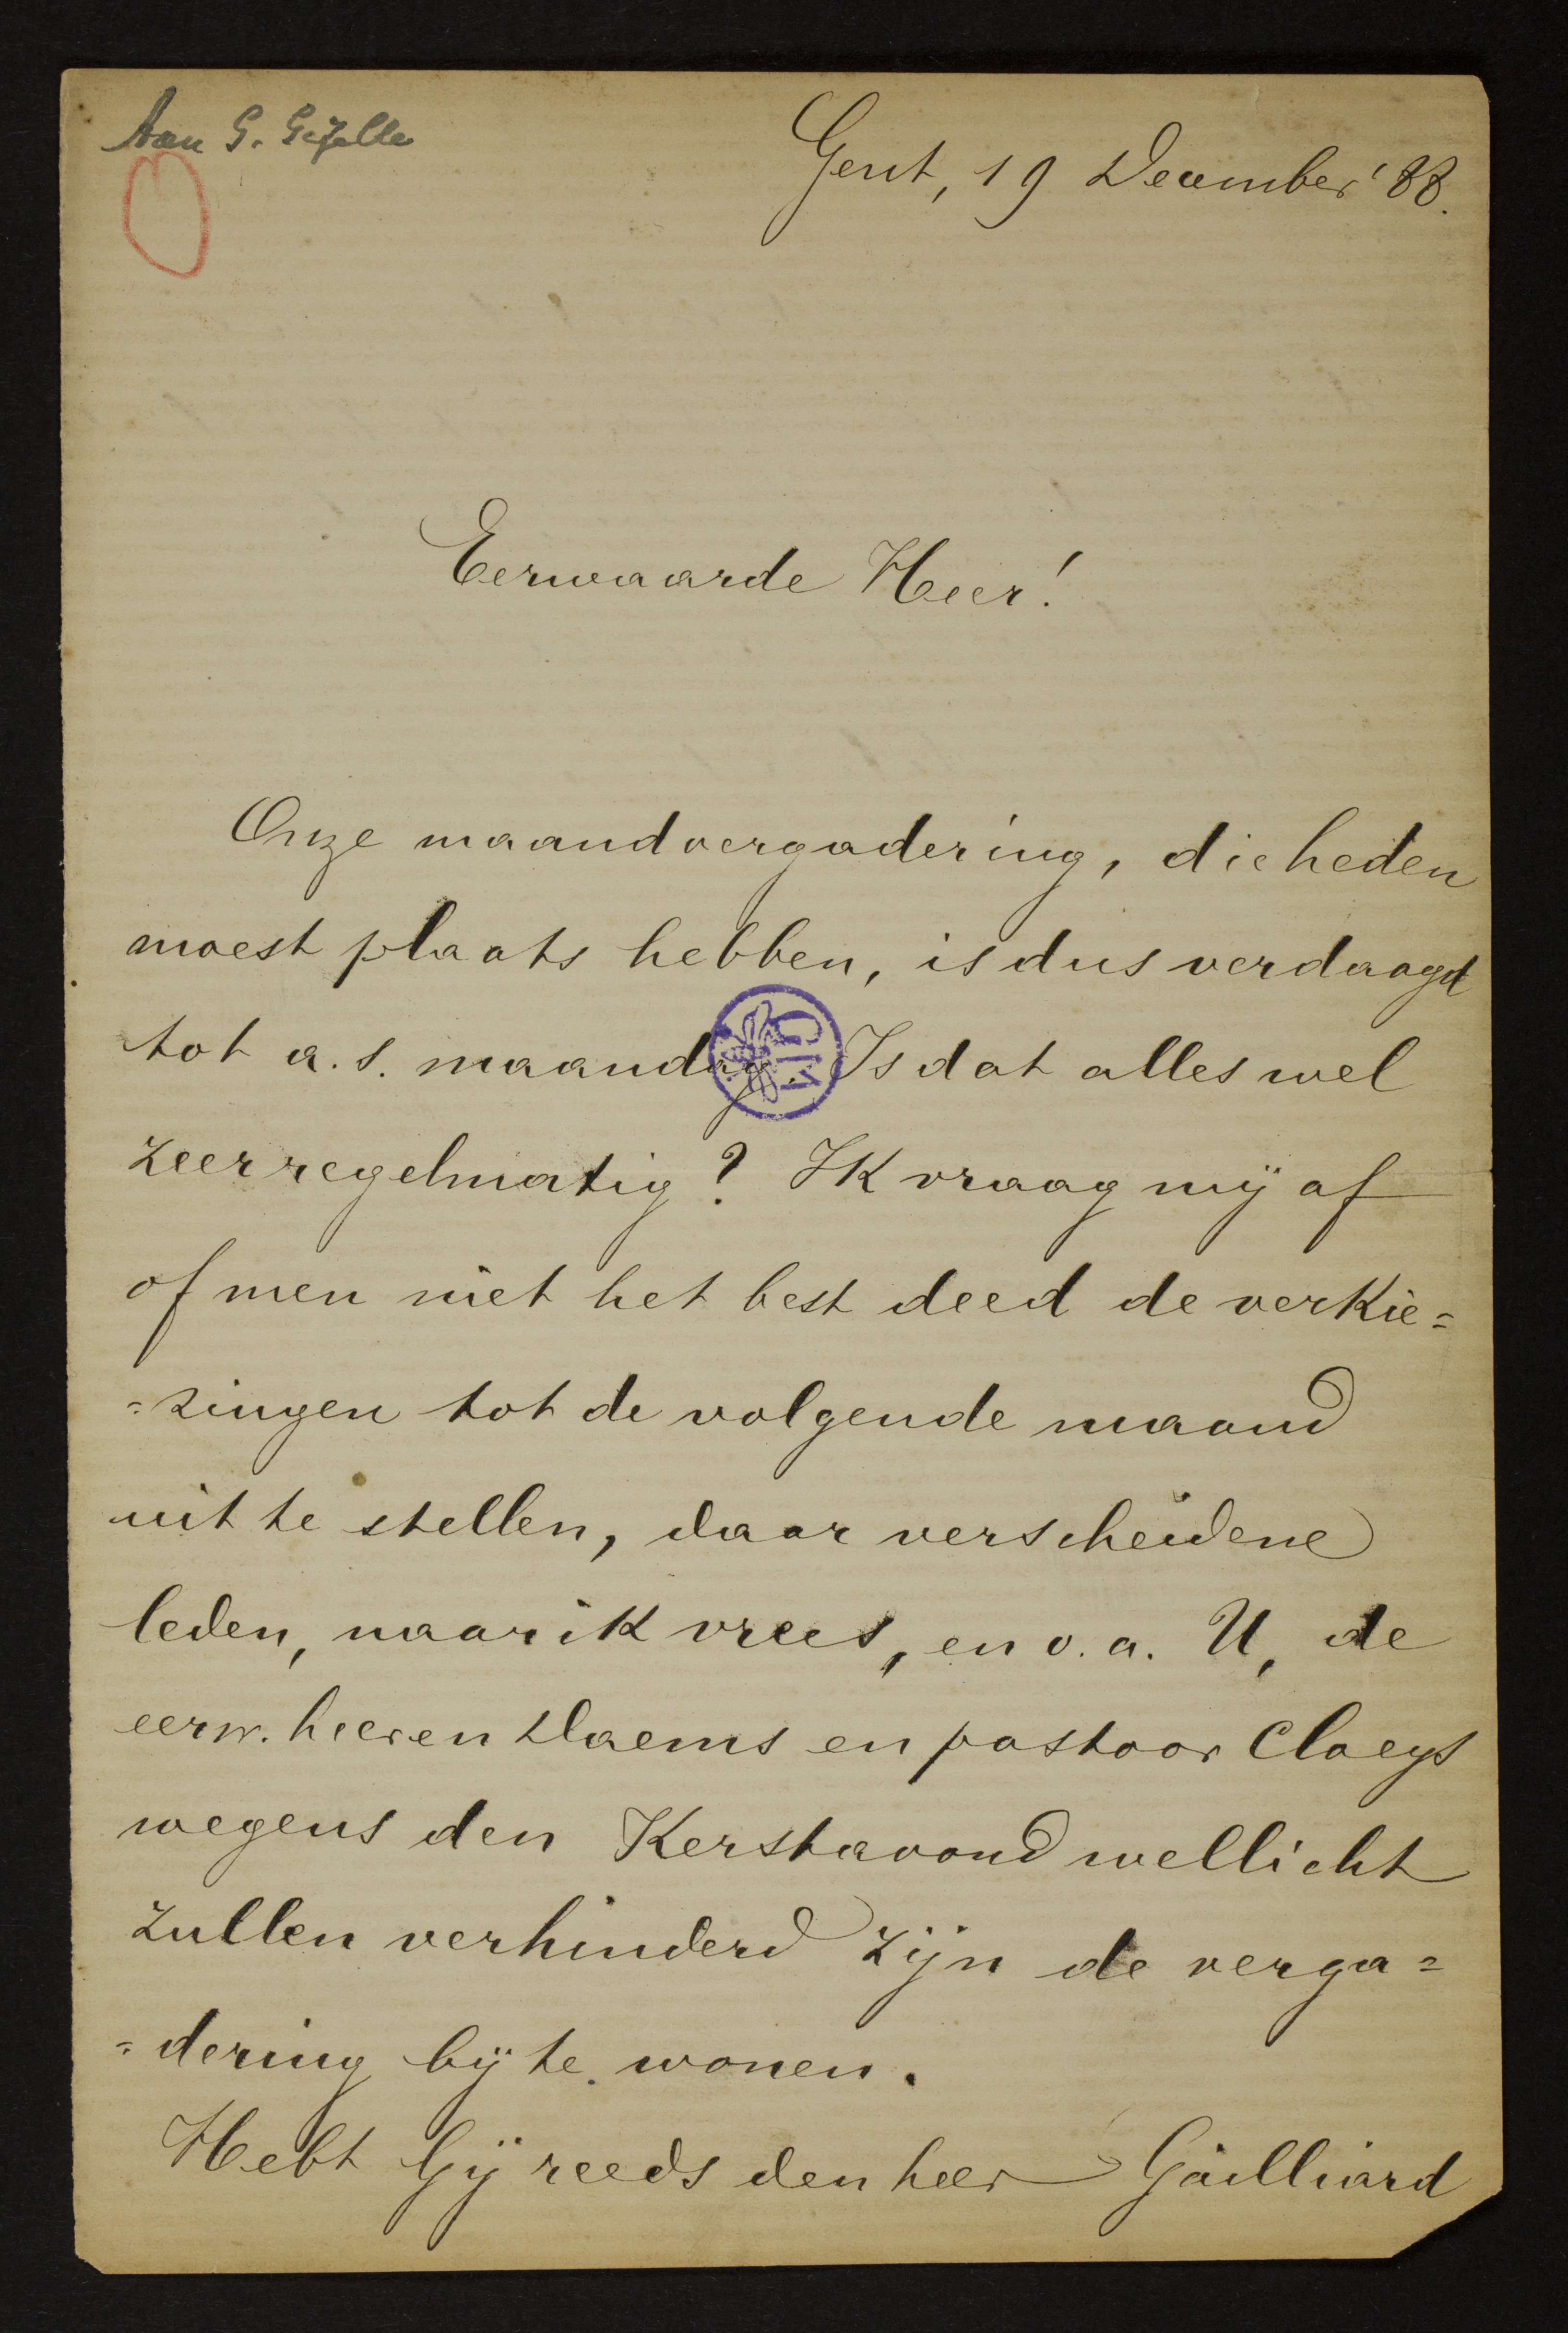 Aan G. Gezelle
Gent, 19 December '88.
Eerwaarde Heer!
Onze maandvergadering, die heden
moest plaats hebben, is dus verdaagd
tot a.s. maandag. Is dat alles wel
zeer regelmatig? Ik vraag mij af
of men niet het best deed de verkie=
=zingen tot de volgende maand
uit te stellen, daar verscheidene
leden, naar ik vrees, en o.a. U, de
eerw. heeren Daems en pastoor Claeys
wegens den Kerstavond wellicht
zullen verhinderd zijn de verga=
=dering bij te wonen.
Hebt Gij reeds den heer Gailliard